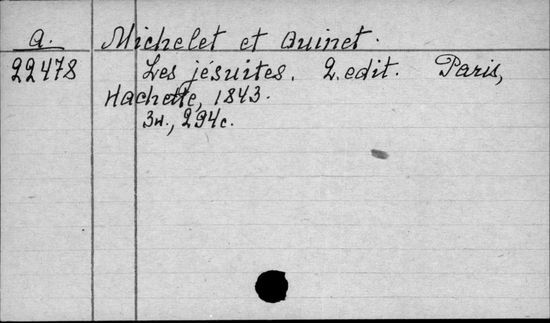 a. Michelet et Quinet.
22478 Les jésuites. 2. edit. Paris,
Hachette, 1843.
3н., 294с.